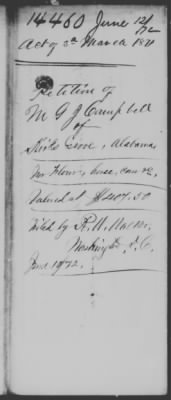 14460 June 12/72
Act of 3d March 1871
Petition of
M G J Campbell
of
Grove, Alabama
for House, horse,
Valued at $ 407.50
Filed by
Washington, D. C.
June 1972.